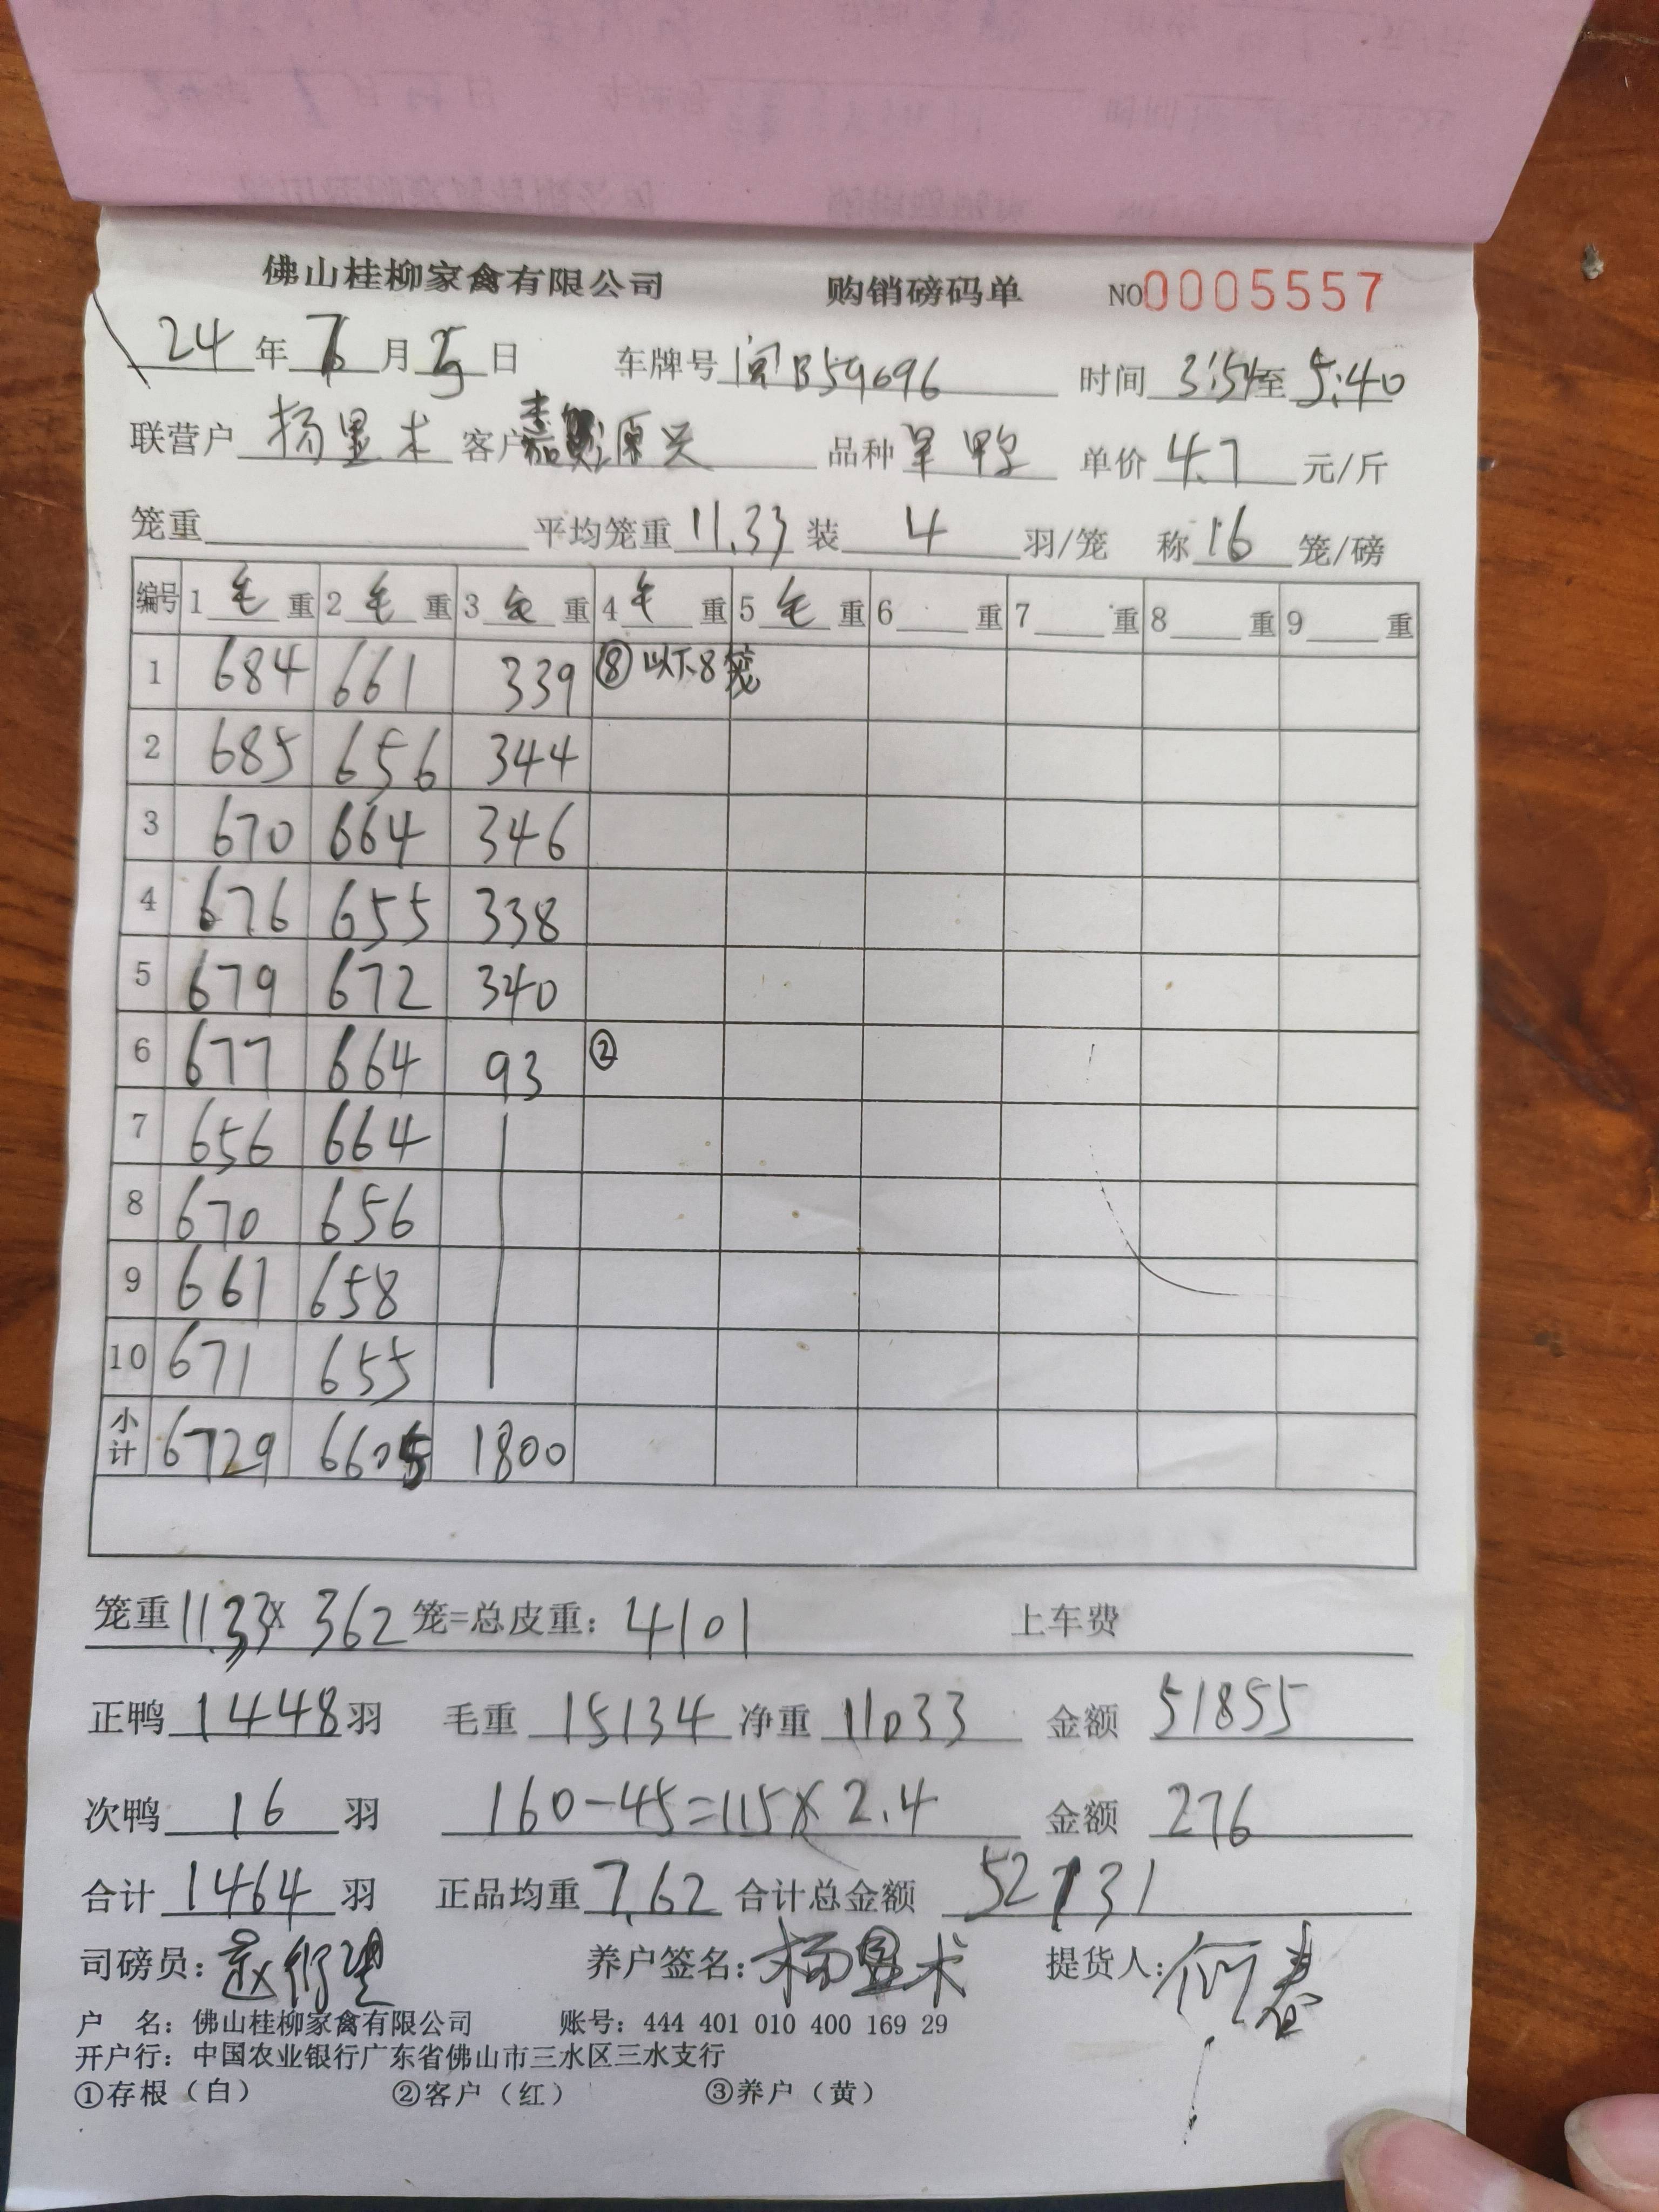 佛山桂柳家禽有限公司 购销磅码单 NO0005557
24年 月5日 车牌号闽B59696 时间3:54至5:40
联营户 杨显术 客户 源兴 品种 旱鸭 单价 4.7 元/斤
笼重 平均笼重 11.33 装 4 羽/笼 称 16 笼/磅
编号 1毛重 2毛重 3毛重 4毛重 5毛重 6重 7重 8重 9重
1 684 661 339 ⑧以下8笼
2 685 656 344
3 670 664 346
4 676 655 338
5 679 672 340
6 677 664 93 ②
7 656 664
8 670 656
9 661 658
10 671 655
小计 6729 6605 1800
笼重11.33x 362笼=总皮重:4101 上车费
正鸭1448羽 毛重15134 净重11033 金额51855
次鸭16羽 160-45=115x2.4 金额276
合计1464羽 正品均重7.62 合计总金额52131
司磅员: 养户签名:杨显术 提货人:何春
户 名:佛山桂柳家禽有限公司 账号:444 401 010 400 169 29
开户行:中国农业银行广东省佛山市三水区三水支行
①存根(白) ②客户(红) ③养户(黄)